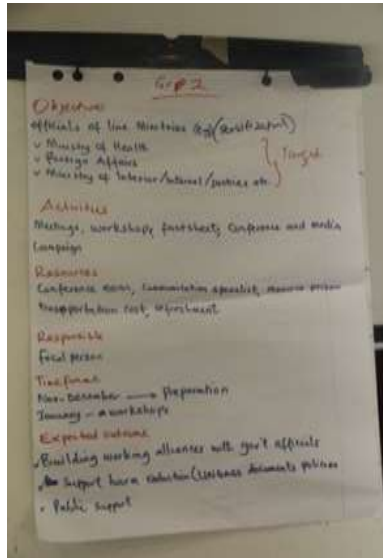 Grp 2
Objectives
Officials of line Ministries (sensitization)
Ministry of Health
Foreign Affairs
Ministry of Interior/Internal/Justice etc.
Target
Activities
Meetings, workshops, factsheets, Conference and media
Campaign
Resources
Conference room, Communication specialist, resource person
transportation cost, refreshment
Responsible
Focal person
Timeframe
Nov-December → Preparation
January - workshops
Expected outcome
Building working alliances with gov't officials
Support harm reduction ( documents policies
Public support